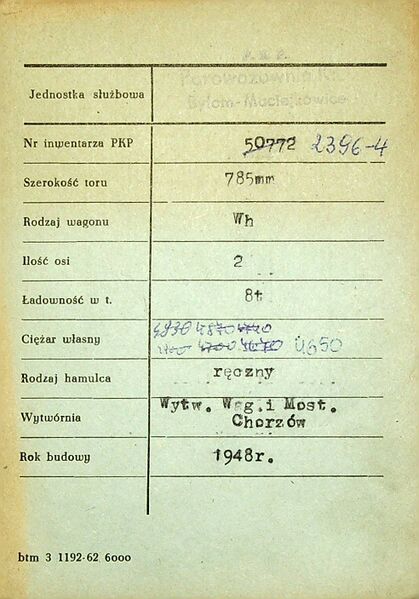 P.K.P.
Parowozownia Kl.
Jednostka służbowa Bytom-Maciejkowice
Nr inwentarza PKP 50772 2396-4
Szerokość toru 785mm
Rodzaj wagonu Wh
Ilość osi 2
Ładowność w t. 8t
4930 4870
Ciężar własny 4700 4.650
Rodzaj hamulca ręczny
Wytw. Wag.i Most.
Wytwórnia Chorzów
Rok budowy 1948r.
btm 3 1192-62 6000